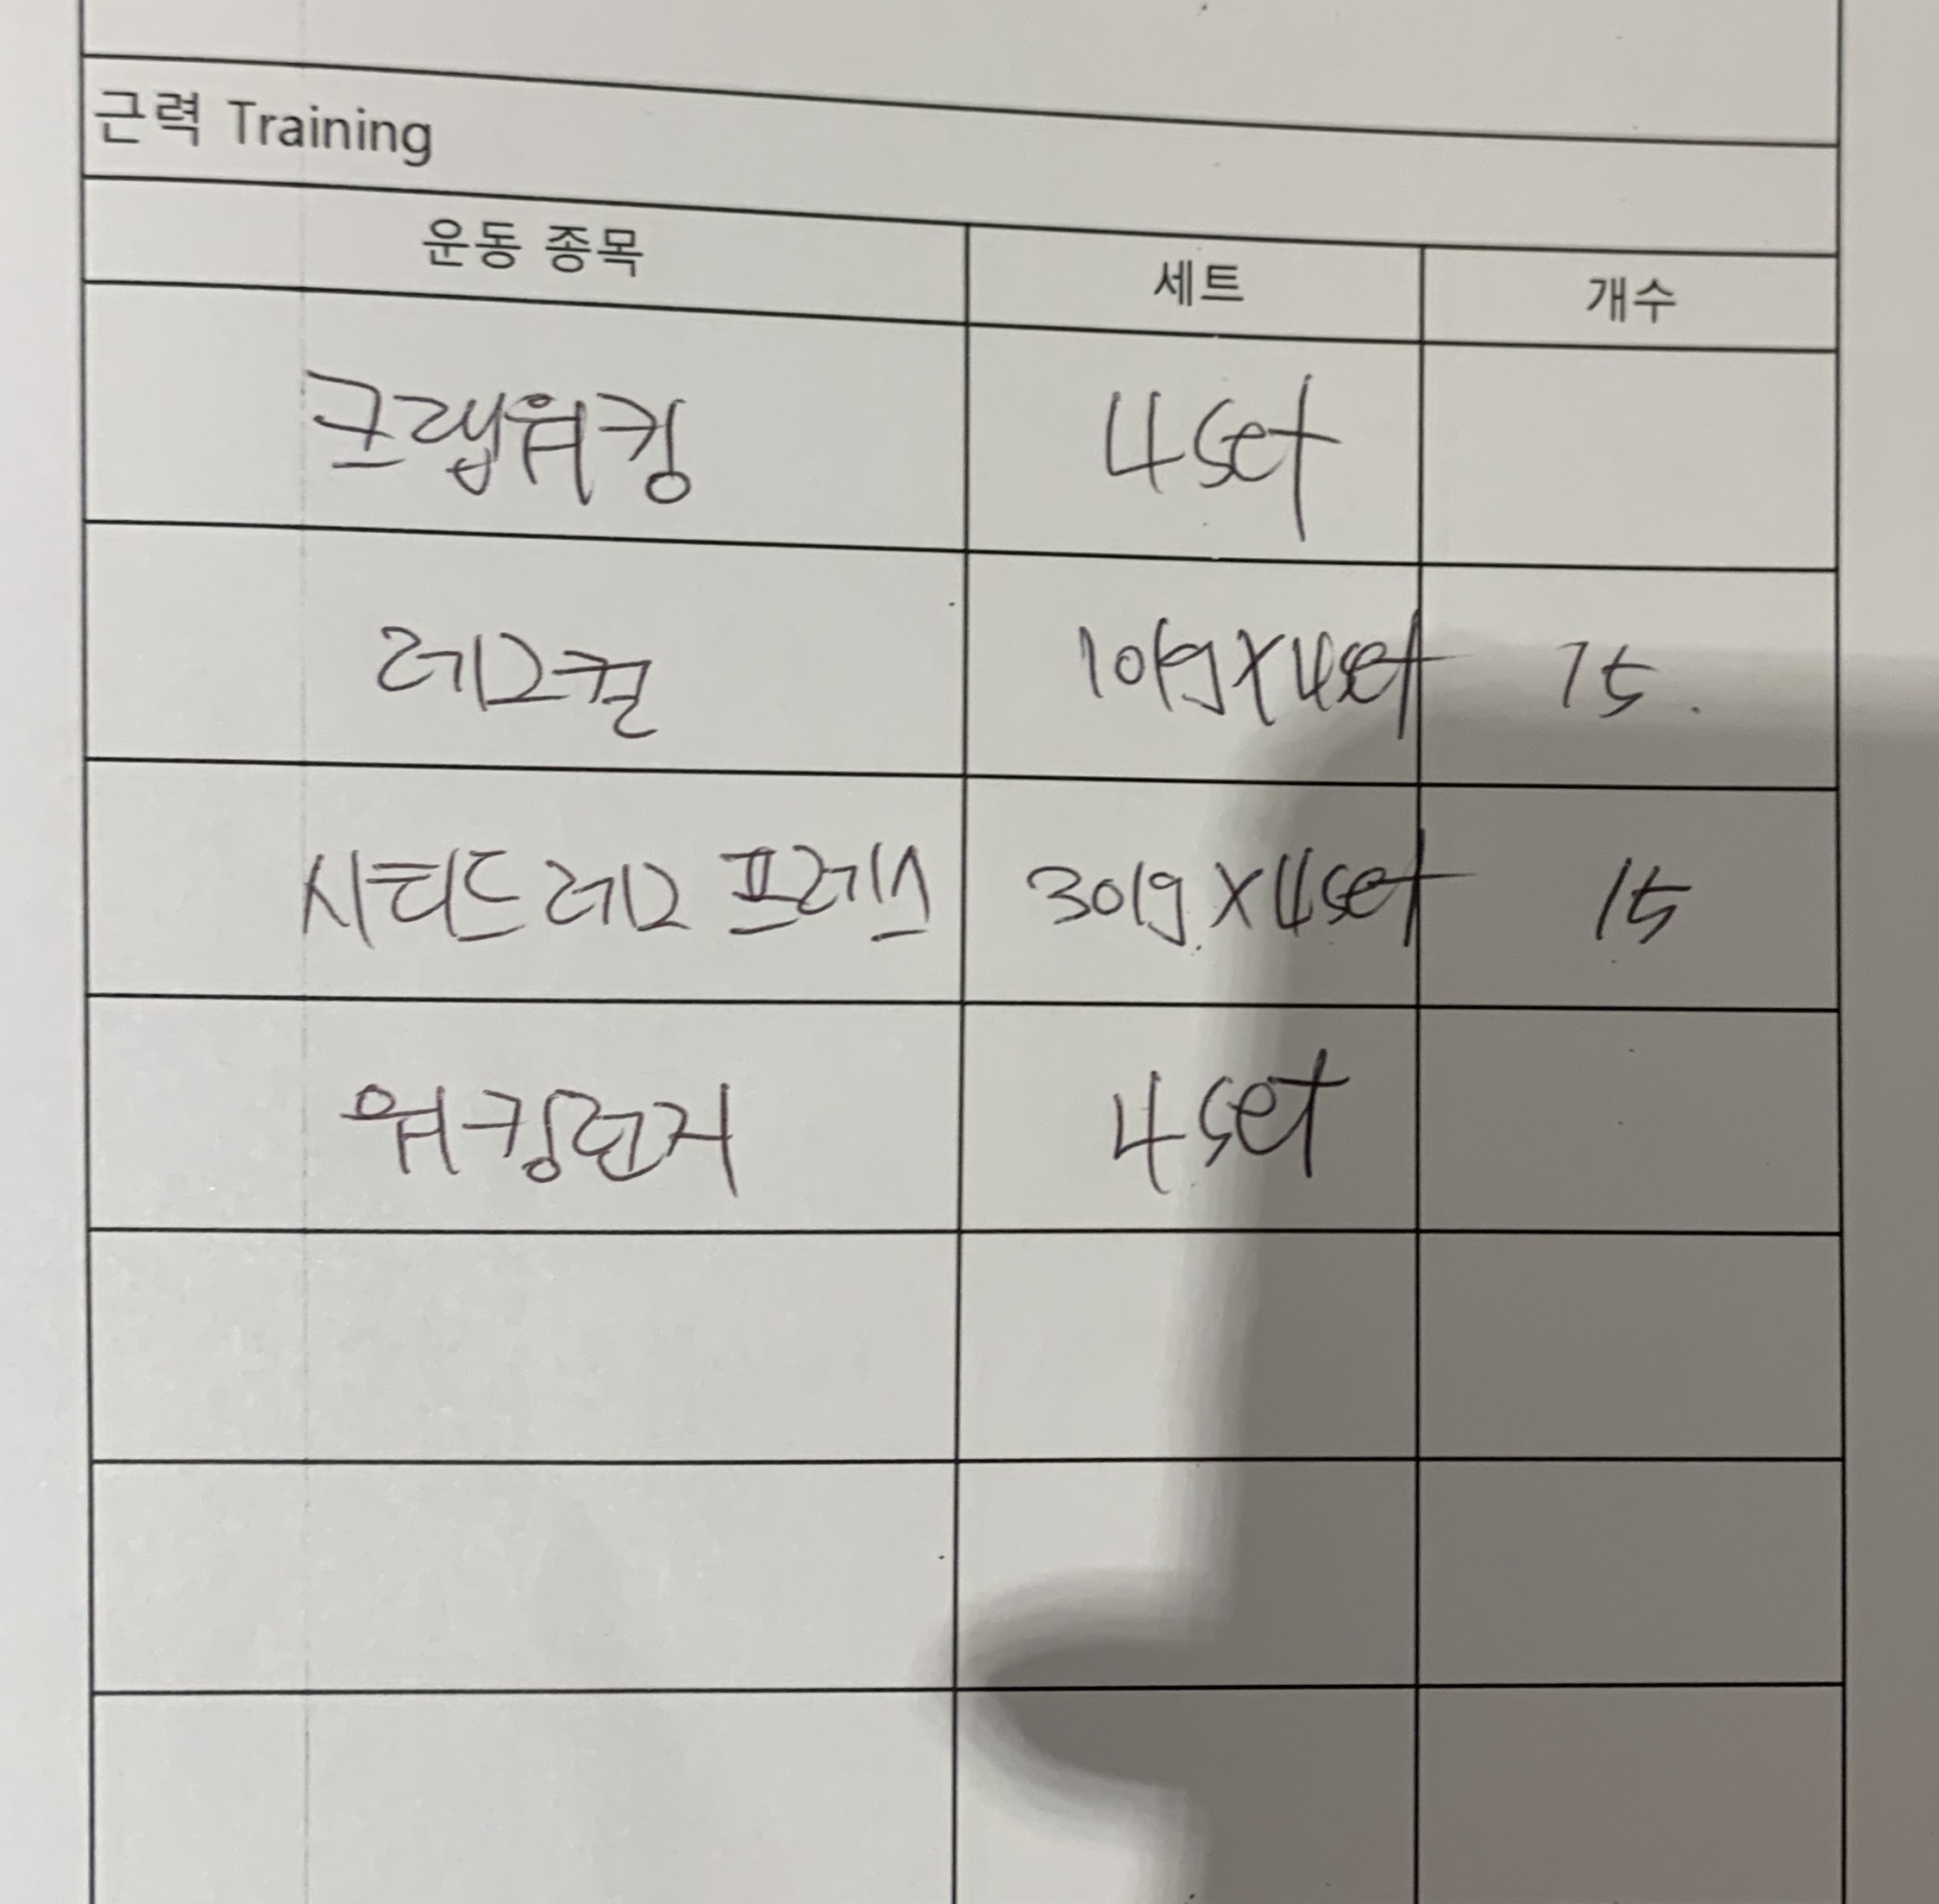 근력 Training
운동 종목 세트 개수
크랩워킹 4set
레그컬 10kg X 4set 15.
시티드 레그 프레스 30kg X 4set 15
워킹런지 4set